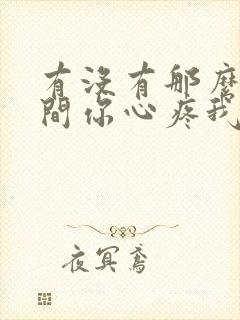 有沒有那麼
間你心疼我
夜冥鳶